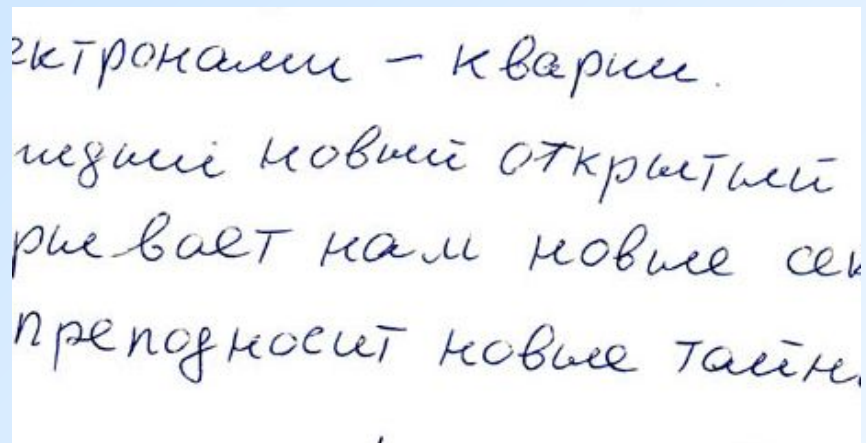 ектронами – кварки.
ждый новый открытый
рывает нам новые сек
преподносит новые тайн